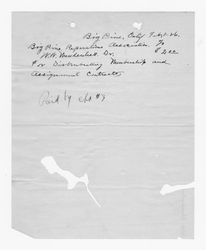 Big Pine, Calif Sept. 26.
Big Pine Reparations Association To
W.W. Dr.
$ 2.00
For Distributing Membership and
Assignment Contracts
Paid by #9